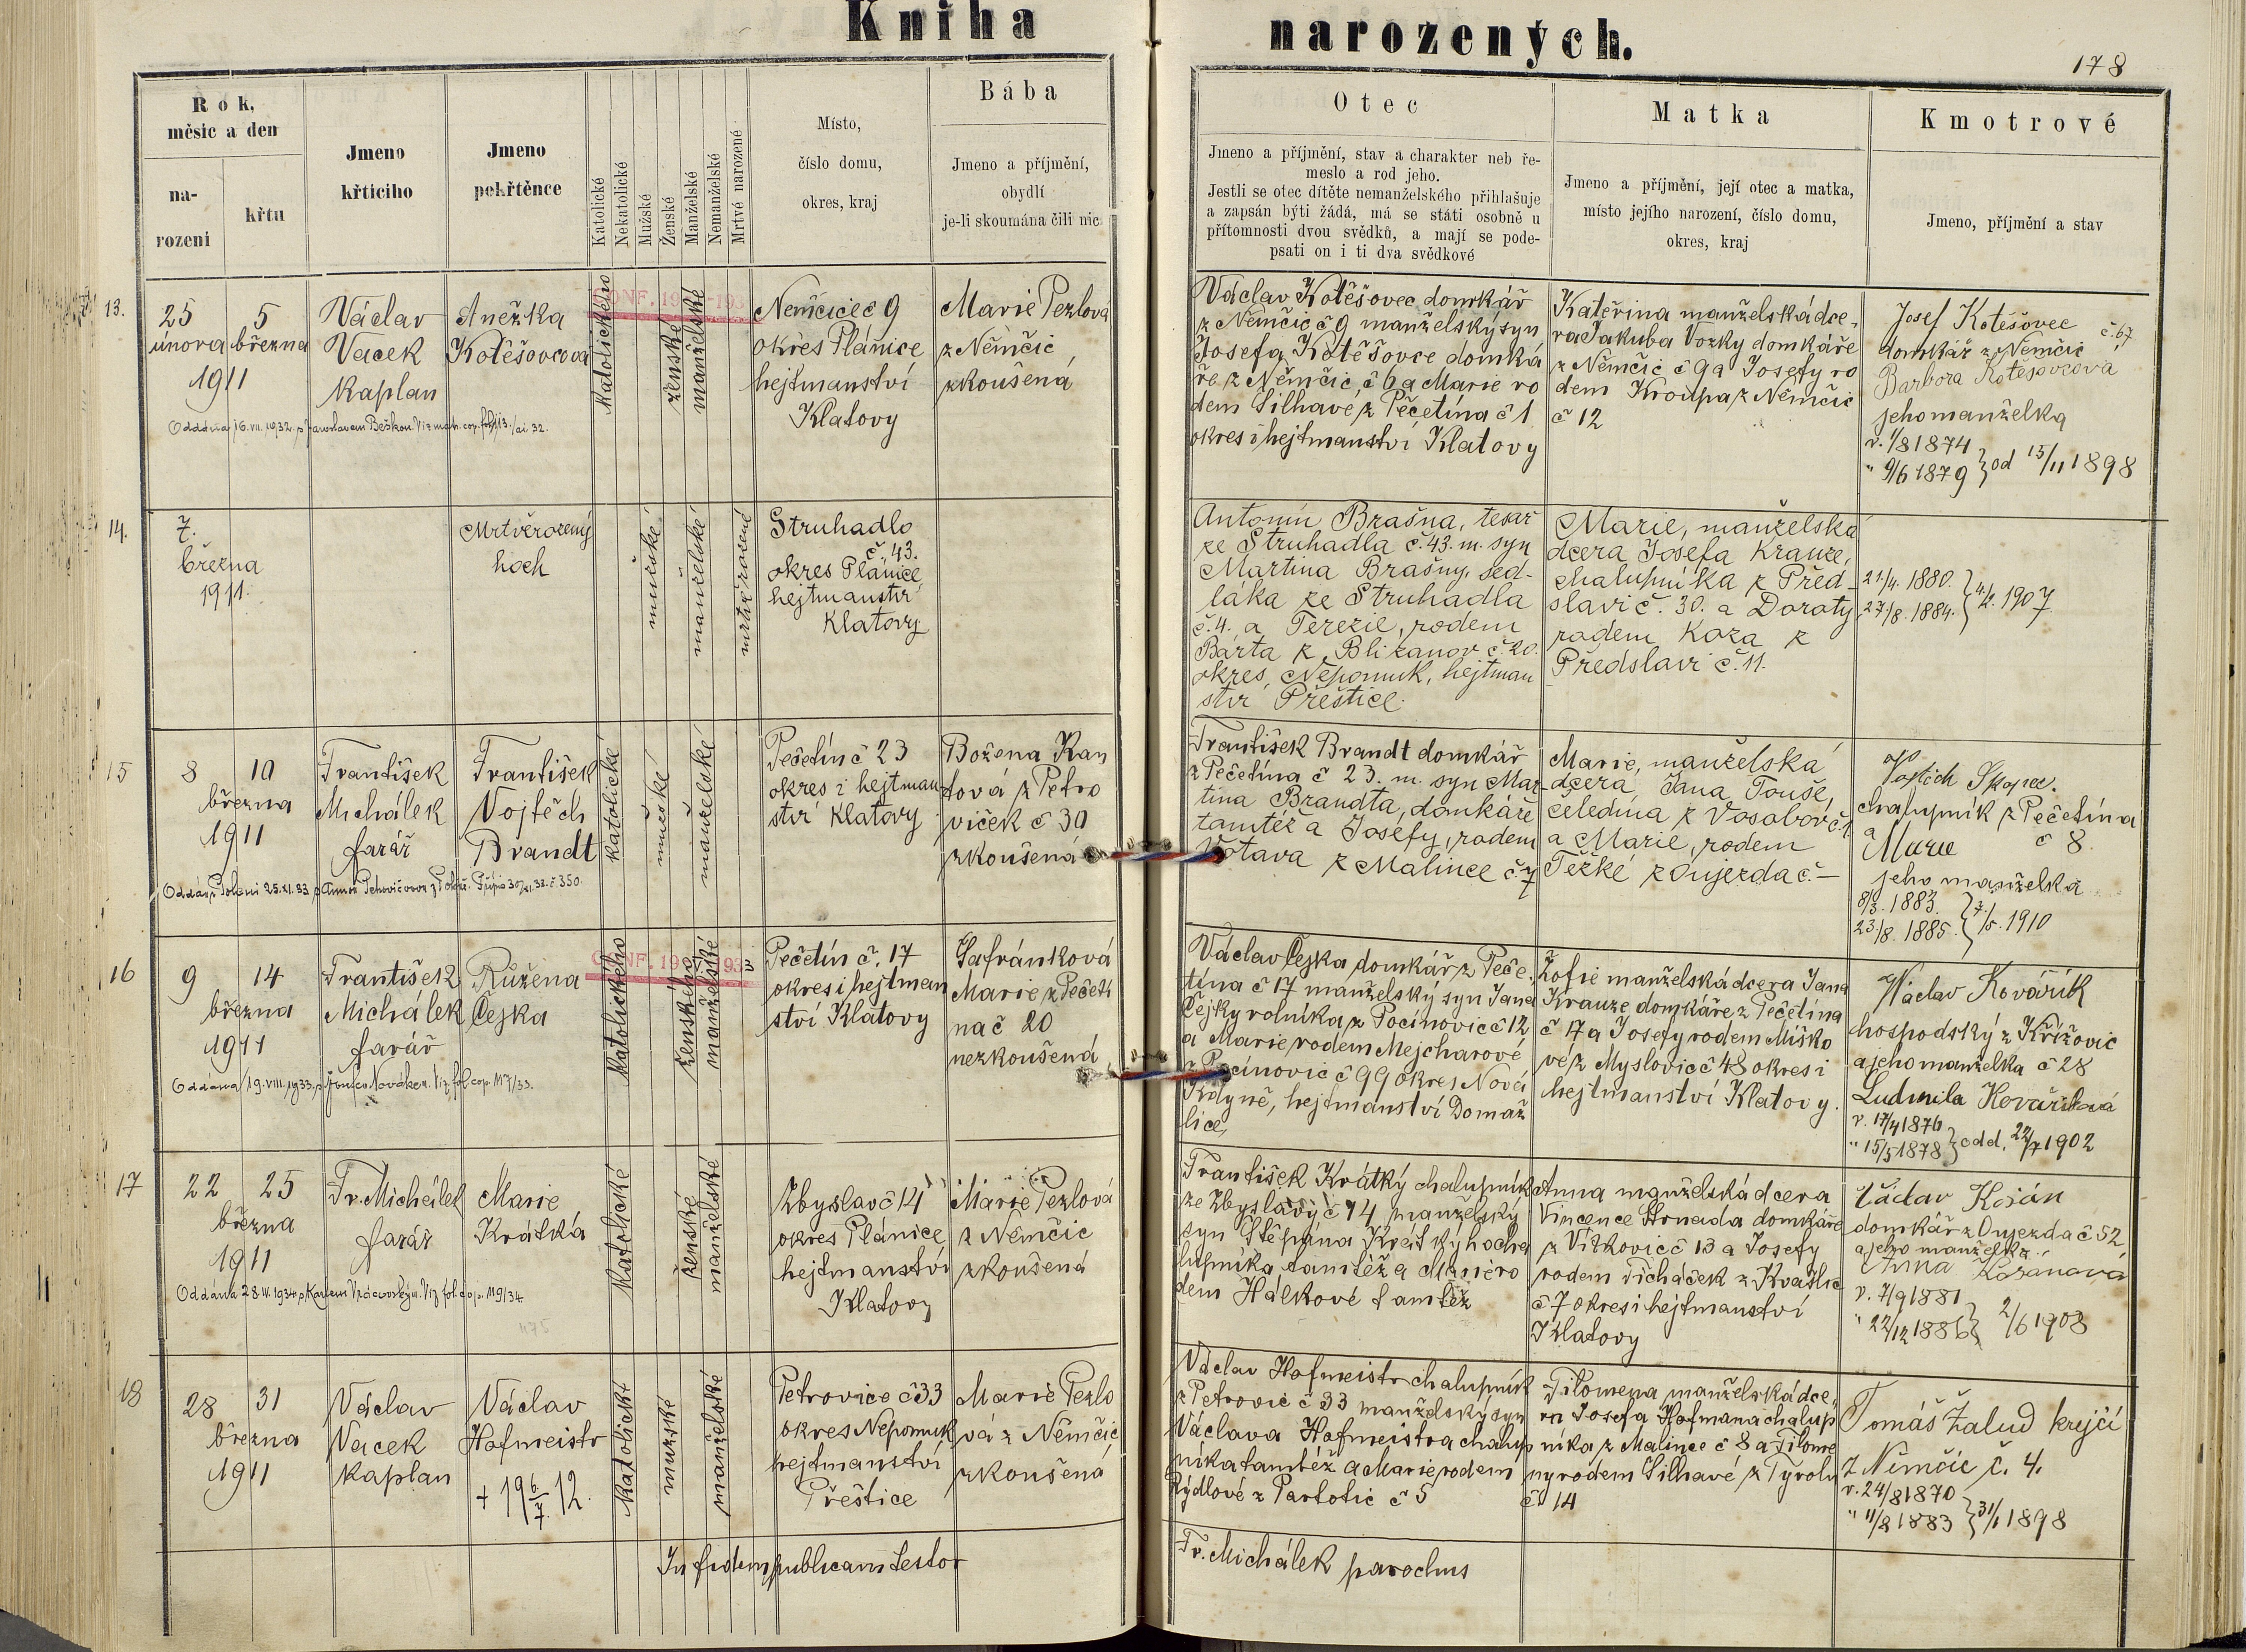 Kniha narozených.
178
Rok, měsíc a den
na-
rození
křtu
Jmeno
křticího
Jmeno
pokřtěnce
Katolické
Nekatolické
Mužské
Ženské
Manželské
Nemanželské
Mrtvé narozené
Místo,
číslo domu,
okres, kraj
Bába
Jmeno a příjmění,
obydlí
je-li skoumána čili nic
Otec
Jmeno a příjmění, stav a charakter neb ře-
meslo a rod jeho.
Jestli se otec dítěte nemanželského přihlašuje
a zapsán býti žádá, má se státi osobně u
přítomnosti dvou svědků, a mají se pode-
psati on i ti dva svědkové
Matka
Jmeno a příjmění, její otec a matka,
místo jejího narození, číslo domu,
okres, kraj
Kmotrové
Jmeno, příjmění a stav
13.
25 5
února března
1911
Václav
Vacek
Kaplan
Anežka
Kotěšovcová
katolického
ženské
manželské
Němčice č 9
okres Plánice
hejtmanství
Klatovy
Marie Pezlová
z Němčic
zkoušená
Václav Kotěšovec domkář
z Němčic č 9 manželský syn
Josefa Kotěšovce domká
ře z Němčic č 6 a Marie ro
dem Silhavé z Pečetína č 1
okres i hejtmanství Klatovy
Kateřina manželská dce-
ra Jakuba Vozky domkáře
z Němčic č 9 a Josefy ro
dem Kroupa z Němčic
č 12
Josef Kotěšovec
domkář z Němčic č. 67
Barbora Kotěšovcová
jeho manželka
n. 1/8 1874
" 9/6 1879 } od 15/11 1898
Oddána 16.VII.1932. s Jaroslavem Beškou. Viz mat. cop. fol. 113.
14.
7.
března
1911.
Mrtvěrozený
hoch
mužské
manželské
mrtvě rozené
Struhadlo
č. 43.
okres Plánice,
hejtmanství
Klatovy
Antonín Brašna, tesař
ze Struhadla č. 43. m. syn
Martina Brašny, sed-
láka ze Struhadla
č. 4. a Terezie, rodem
Bárta z Bližanov č. 20.
okres Nepomuk, hejtman
ství Přeštice.
Marie, manželská
dcera Josefa Krauze,
chalupníka z Před-
slavi č. 30. a Doroty
rodem Koza z
Předslavi č. 11.
21./4. 1880.
27./8. 1884. } 1907
15
8 10
března
1911
František
Michálek
farář
František
Vojtěch
Brandt
katolické
mužské
manželské
Pečetín č 23
okres i hejtman
ství Klatovy
Božena Kan
tová z Petro
viček č 30
zkoušená
František Brandt domkář
z Pečetína č 23. m. syn Mar-
tina Brandta, domkáře
tamtéž a Josefy, rodem
Votava z Malince č. 7
Marie, manželská
dcera Jana Touše,
čeledína z Vosobov č. 1
a Marie, rodem
Težké z Oujezda č. –
Vojtěch Skopec.
chalupník z Pečetína
a č 8
Marie
jeho manželka
8/3. 1883.
23./8. 1885. } 7./5. 1910
16
9 14
března
1911
František
Michálek
farář
Růžena
Čejka
katolického
ženského
manželské
Pečetín č. 17
okres i hejtman
ství Klatovy
Šafránková
Marie z Pečetí
na č 20
nezkoušená
Václav Čejka domkář z Peče-
tína č 17 manželský syn Jana
Čejky rolníka z Pocinovic č 12
a Marie rodem Mejcharové
z Pocinovic č 99 okres Nová
Kdyně, hejtmanství Domaž
lice,
Žofie manželská dcera Jana
Krauze domkáře z Pečetína
č 17 a Josefy rodem Miško
vé z Myslovic č 48 okres i
hejtmanství Klatovy.
Václav Kovářík
hospodský z Křížovic
a jeho manželka č 28
Ludmila Kovaříková
n. 17/4 1876
" 15/5 1878 } odd. 22/7 1902
17
22 25
března
1911
Fr. Michálek
farář
Marie
Krátká
katolické
ženské
manželské
Zbyslav č 14
okres Plánice
hejtmanství
Klatovy
Marie Pezlová
z Němčic
zkoušená
František Krátký chalupník
ze Zbyslavy č 14 manželský
syn Štěpána Krátkýho cha
lupníka tamtéž a Marie ro
dem Hálkové tamtéž
Anna manželská dcera
Vincence Hrnada domkáře
z Vítkovic č 13 a Josefy
rodem Ticháček z Kvašlic
č 7 okres i hejtmanství
Klatovy
Václav Kozán
domkář z Oujezda č 52
a jeho manželka
Anna Kozánová
n. 7/9 1881
" 22/12 1886 } 2/6 1908
18
28 31
března
1911
Václav
Vacek
kaplan
Václav
Hofmeistr
+ 19 6/7. 12.
katolické
mužské
manželské
Petrovice č 33
okres Nepomuk
hejtmanství
Přeštice
Marie Pezlo
vá z Němčic
zkoušená
Václav Hofmeistr chalupník
z Petrovic č 33 manželský syn
Václava Hofmeistra chalup
níka tamtéž a Marie rodem
Rýdlové z Partotic č 5
Filomena manželská dce,
ra Josefa Hofmana chalup
níka z Malince č 8 a Filome
ny rodem Silhavé z Tyrolu
č 14
Tomáš Žalud krejčí
z Němčic č. 4.
n. 24/8 1870
" 11/2 1883 } 31/1 1898
In fidem publicam testor
Fr. Michálek parochus